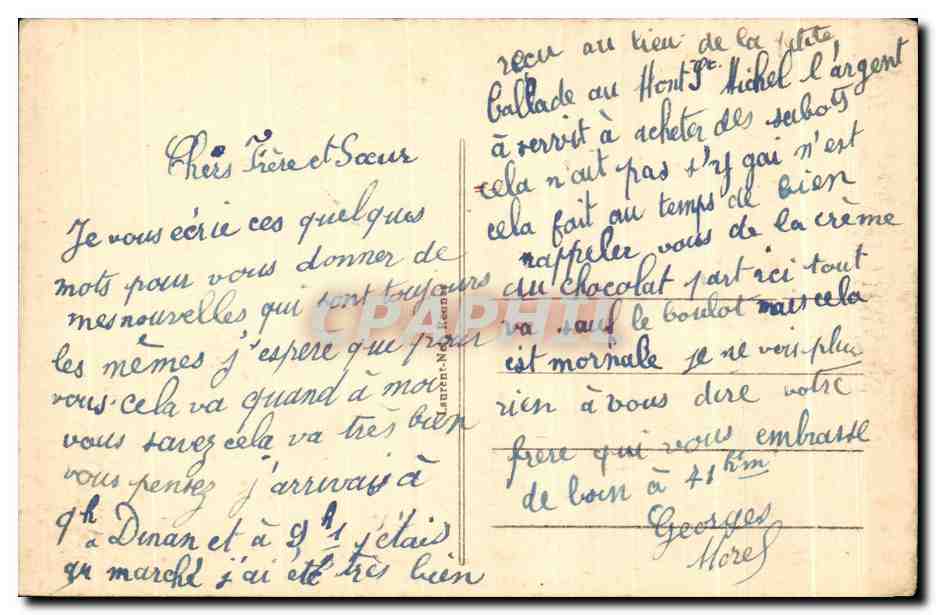 Chers Frère et Sœur
Je vous écrie ces quelques
mots pour vous donner de
mes nouvelles qui sont toujours
les mêmes j'espere que pour
vous cela va quand à moi
vous savez cela va très bien
vous pensez j'arrivais à
9h à Dinan et à 9h1 j'étais
au marché j'ai été très bien
reçu au lieu de la petite
ballade au Mont St Michel l'argent
à servit à acheter des sabots
cela n'ait pas s'y gai n'est
cela fait au temps de bien
rappeler vous de la crème
au chocolat part ici tout
va sauf le boulot mais cela
est mornale je ne vois plus
rien à vous dire votre
frère qui vous embrasse
de loin à 41 km
Georges
Morel
Laurent-Nel Rennes
CPAPHIL